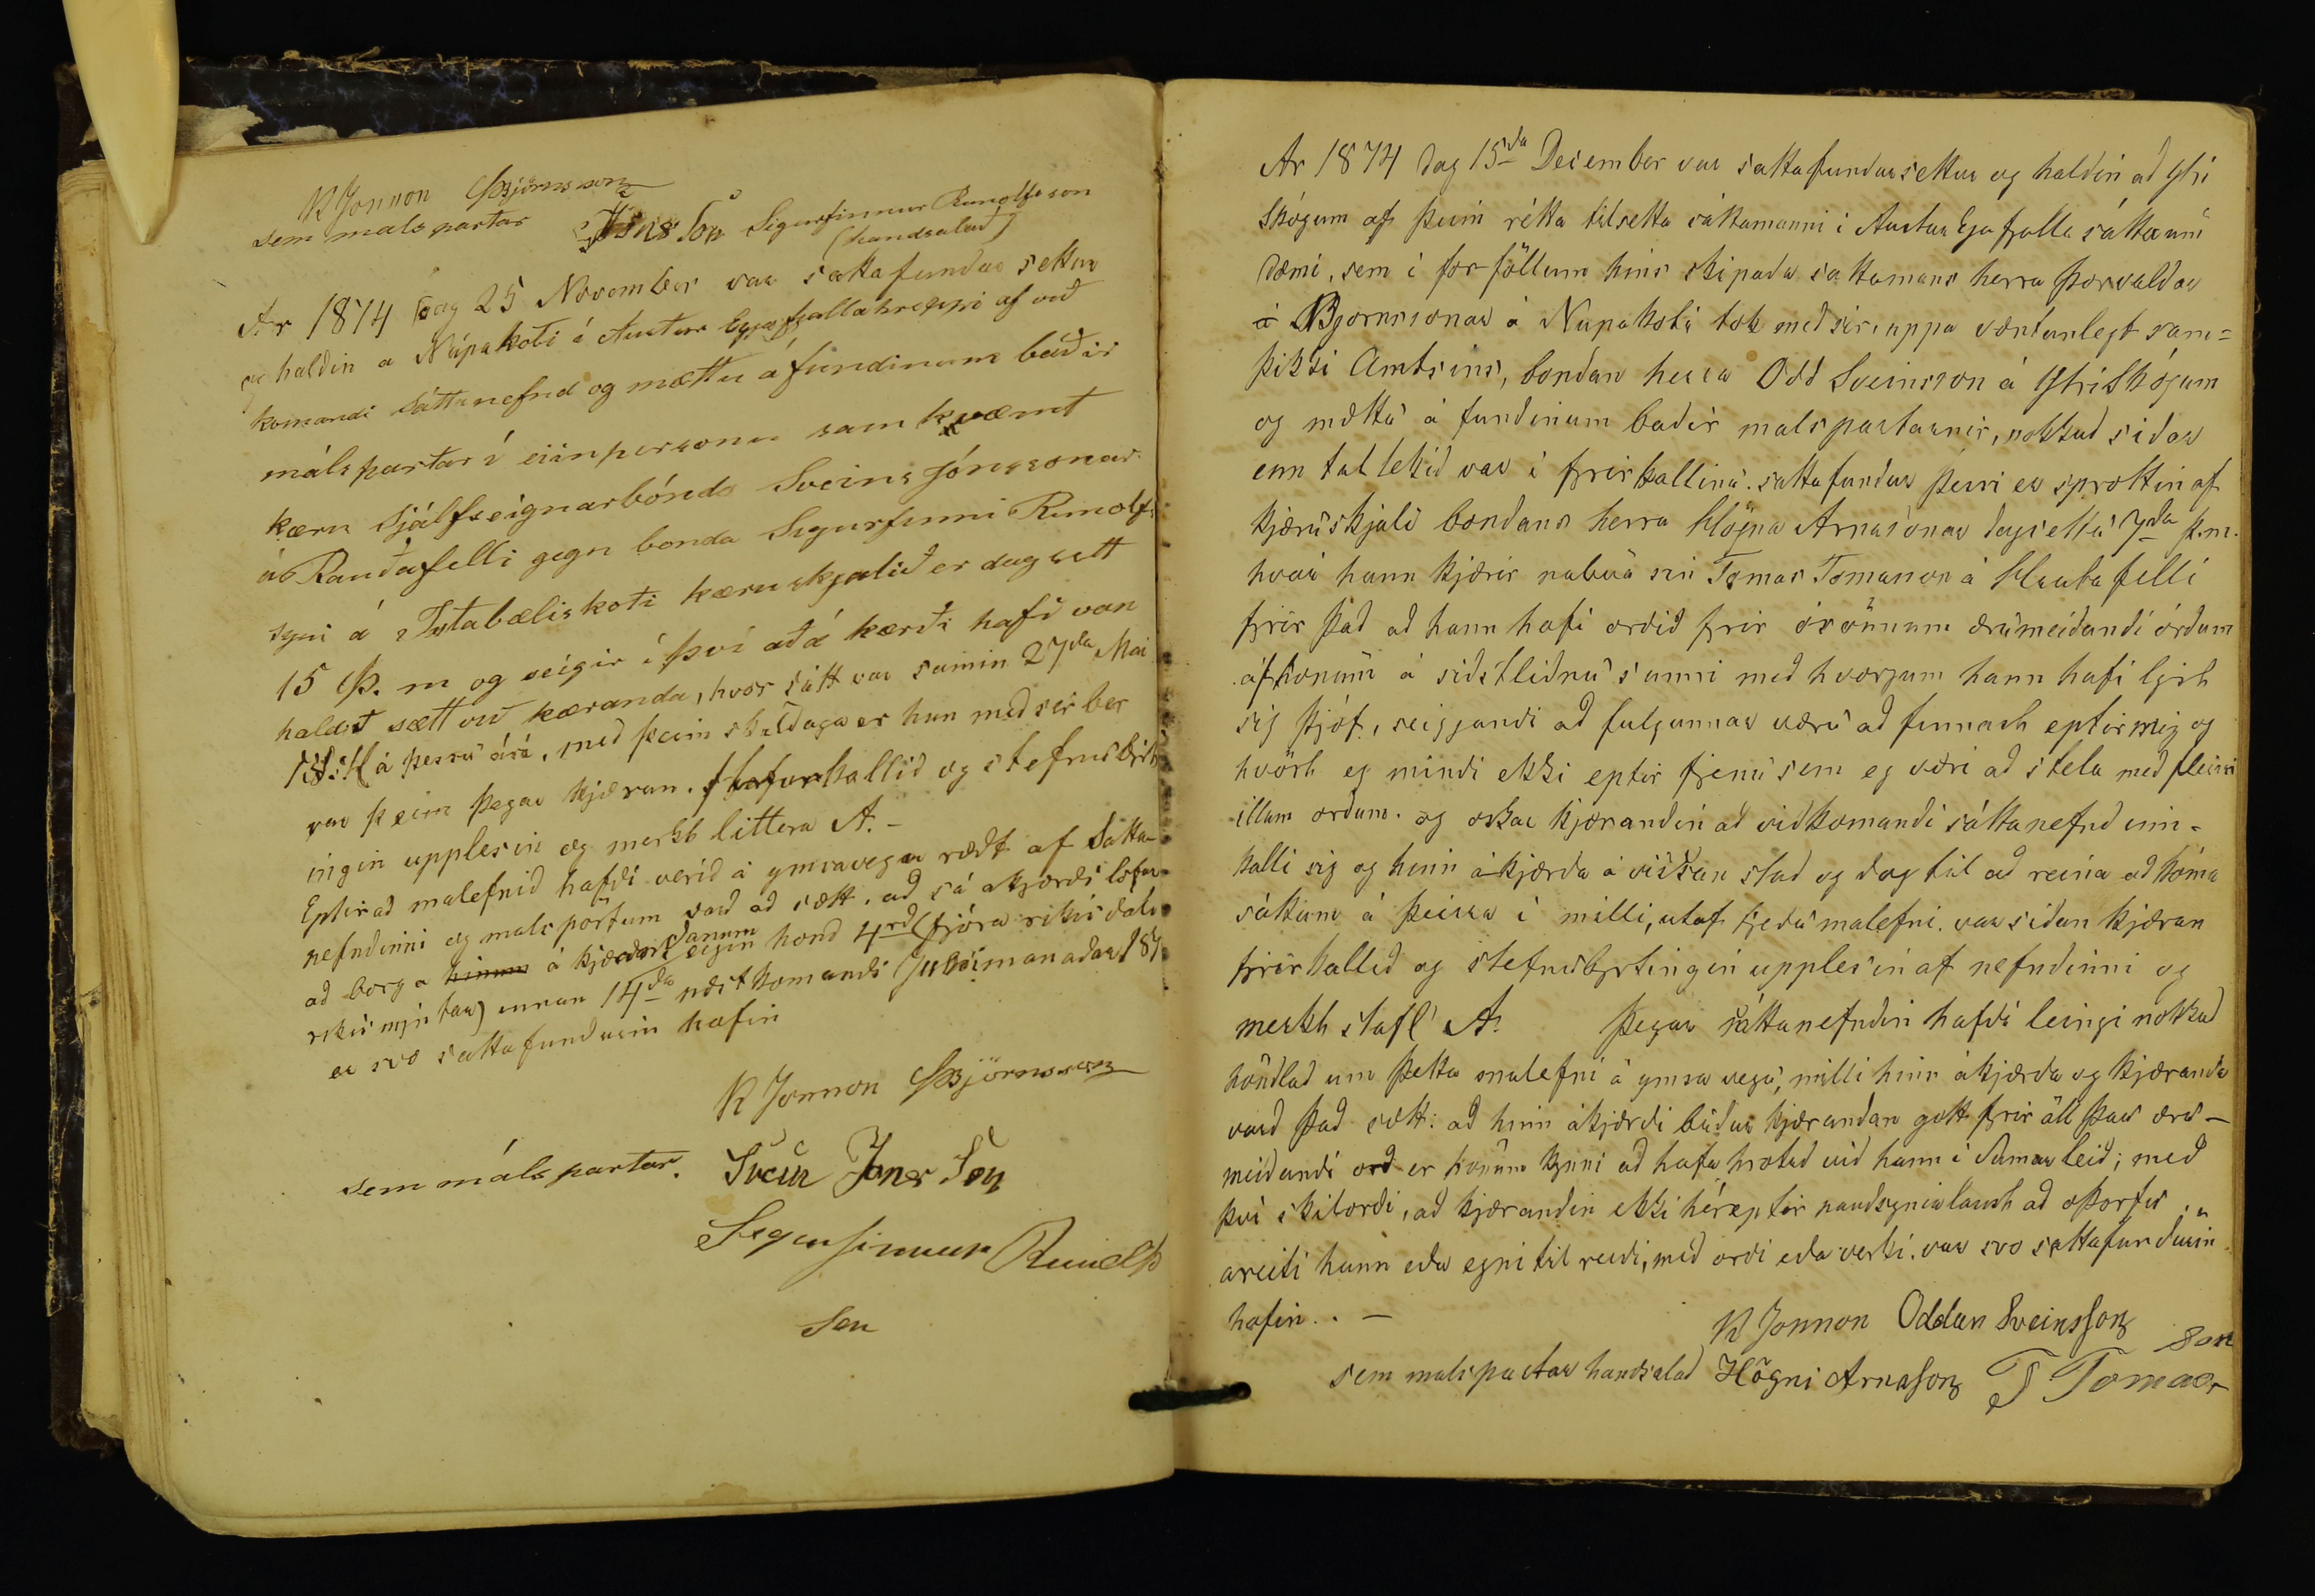 R Jonnon ÞBjörnsson
sem malspartar S Jóns Són Sigurfinnur Runolfsson
(handsalað)
Ar 1874 Dag 25 November var sattafundur settur
og haldin a Núpakoti í Austur Eyjafjallahreppi af við
komandi sáttanefnd og mættu á fundinum báðir
málspartar í eiinpersonu samkvæmt
kæru Sjálfseignarbónda Sveins Jónssonar
á Rauðafelli gegn bonda Sigurfinni Runolfs
syni á Ystabæliskoti kæruskjalið er dagsett
15 Þ. m og seigir í því að á kærði hafi van
haldið sætt við kæranda, hvor sátt var samin 27da Mai
á þessu ári, með þeim skildaga er hun með sér ber
var þeim þegar kjæran, fyrirkallið og stefnubyrt
ingin upplesin og merkt littera A. -
Eptir að malefnið hafði verið á ymsavegu rædt af Sátta-
nefndinni og malspörtum varð að sætt, að sá akjærði lofar
að borga hinum á kjærdanum eigin hond 4rd (fjóra rikisdali
rikismyntar) innan 14da næstkomandi Julimanaðar 187
er svo sattafundurin hafin
R Jonnon ÞBjörnsson
sem málspartar. Svein Jons Son
Sigurfinnur Runolfs
Son
Ar 1874 dag 15da December var sattafundur settur og haldin að Ytri
Skógum af þeim rétta tilsetta sáttamanni i Austur Eyafjalla sátta um
dæmi, sem i forföllum hins skipada sattamans herra Þorvaldar
á Bjornsonar á Nupakoti tok með sér, uppa væntanlegt sam=
þikki Amtsins, bondan herra Odd Sveinsson á Ytri Skógum
og mættu á fundinum badir malspartarnir, nokkud sidar
enn tiltekid var i fyrirkallinu. sattafundur þessi er sprottin af
kjæruskjali bondans herra Högna Arnasonar dagsettu 7da þ.m.
hvar hann kjærir nabúa sin Tomas Tomasson á Rauðafelli
fyrir þad ad hann hafi ordid fyrir ósönnum ærumeidandi ordum
af honum á sidstlidnu sumri med hvorjum hann hafi lýst
sig þjóf, seigjandi að fulgunnar væru að finnast eptir mig og
hvört eg mindi ekki eptir fjenu sem eg væri að stela med fleiri
illum ordum. og oskar kjærandin að viðkomandi sáttanefnd inn=
kalli sig og hinn ákjærda á vissan stad og dag til að reina að koma
sáttum á þeirra i milli, utaf tjedu malefni. var sidan kjæran
fyrirkallid og stefnubyrtingin upplesin af nefndinni og
merkt stafl A. Þegar sáttanefndin hafdi leingi nokkud
höndlad um þetta malefni á ymsa vegu, milli hins ákjærda og kjæranda
vard þad sætt: að hinn ákjærdi bidur kjærandan gott fyrir öll þau æru-
meidandi ord er honum kynni að hafa hrotid vid hann i Sumar leid; með
þvi skilordi, að kjærandin ekki héreptir naudsynialaust að oþorfu
areiti hann eda egni til reidi, med ordi eda verki. var svo sattafundurin
hafin. . -
R Jonnon Oddur Sveinsson
son
sem malspartar handsalad Högni Arnason T Tomas